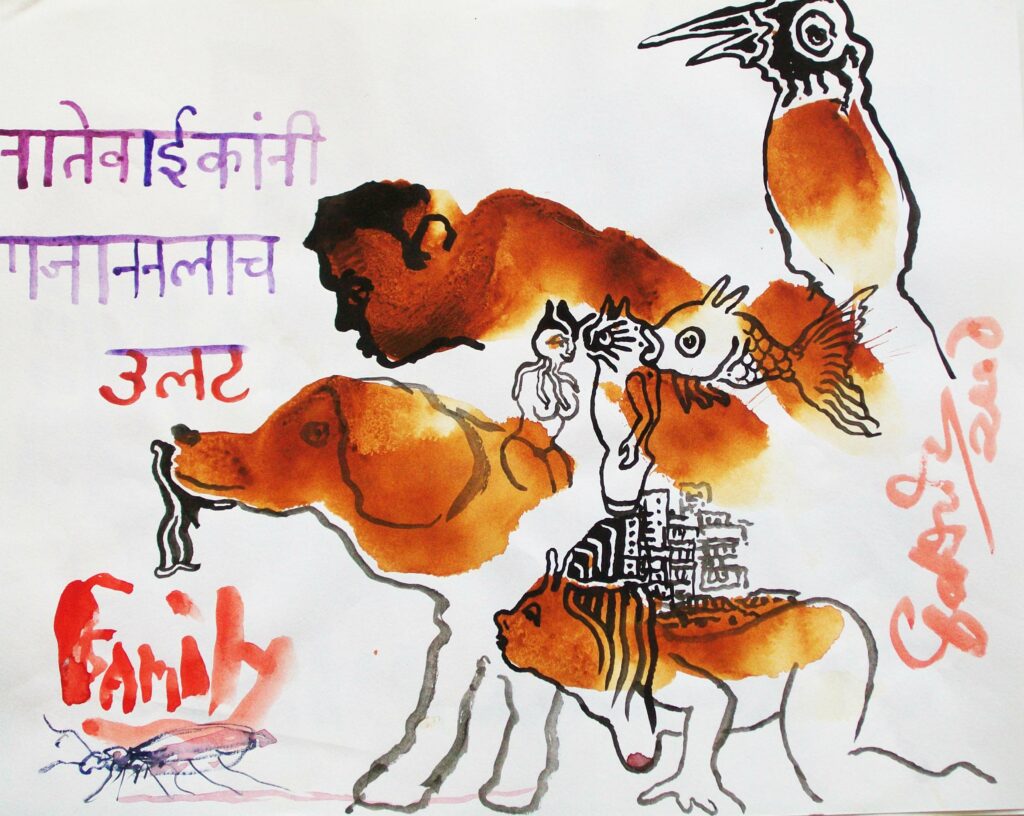 नातेवाईकांनी
गजाननलाच
उलट
Family